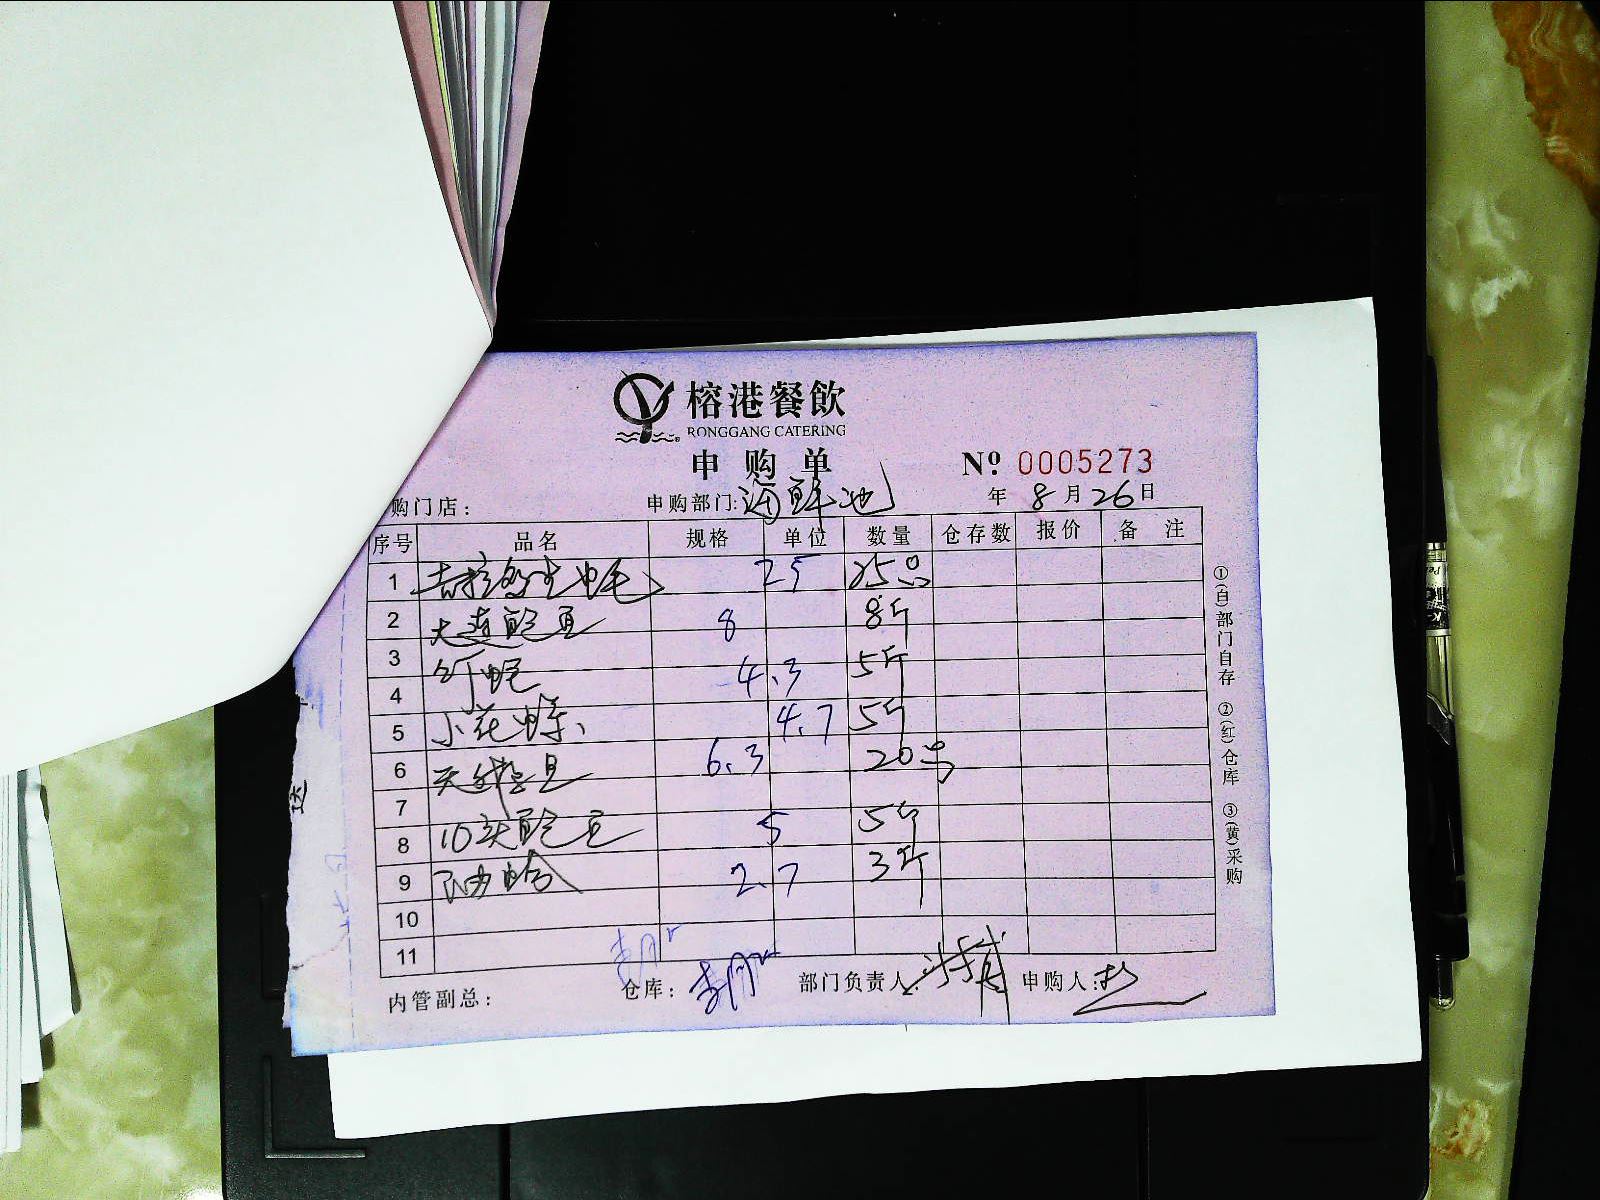 榕港餐飲
RONGGANG CATERING
申购单
Nº 0005273
购门店： 申购部门: 海鲜池 年 8 月 26 日
序号 品名 规格 单位 数量 仓存数 报价 备注
1 吉拉多生蚝 25 25只
2 大连鲍鱼 8 8斤
3 4.3 5斤
4
5 小花螺 4.7 5斤
6 6.3 20只
7
8 10头鲍鱼 5 5斤
9 油蛤 2.7 3斤
10
11
内管副总： 仓库： 部门负责人: 申购人:
①(白)部门自存 ②(红)仓库 ③(黄)采购